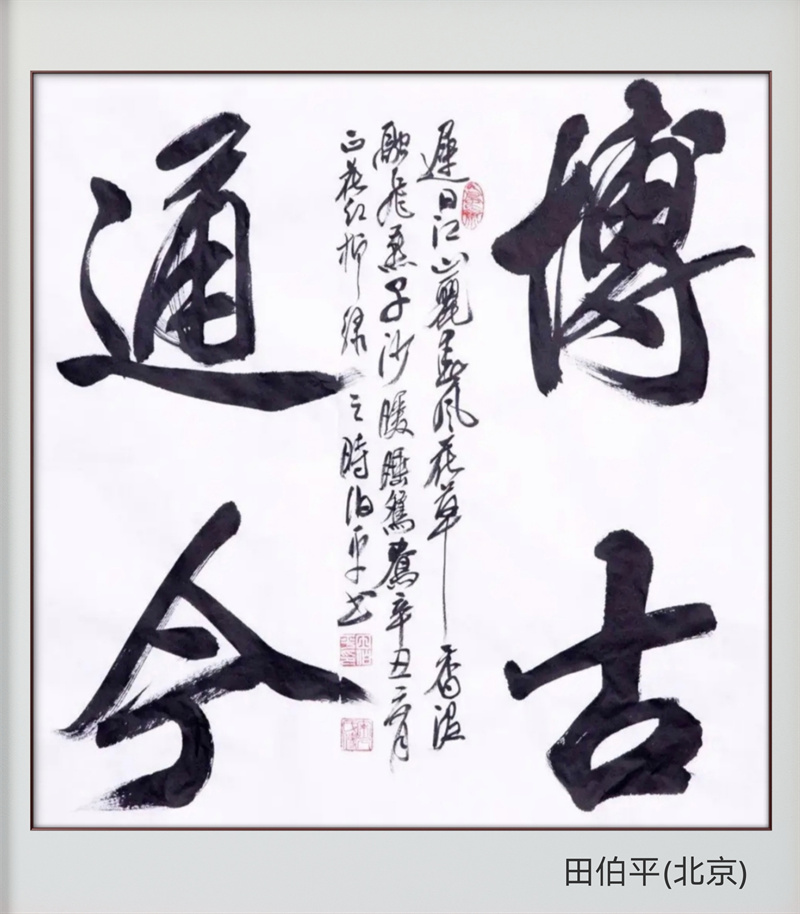 博古
遲日江山麗春風花草香泥
融飛燕子沙暖睡鴛鴦辛丑二月
正花紅柳綠之時伯平書
通今
田伯平(北京)